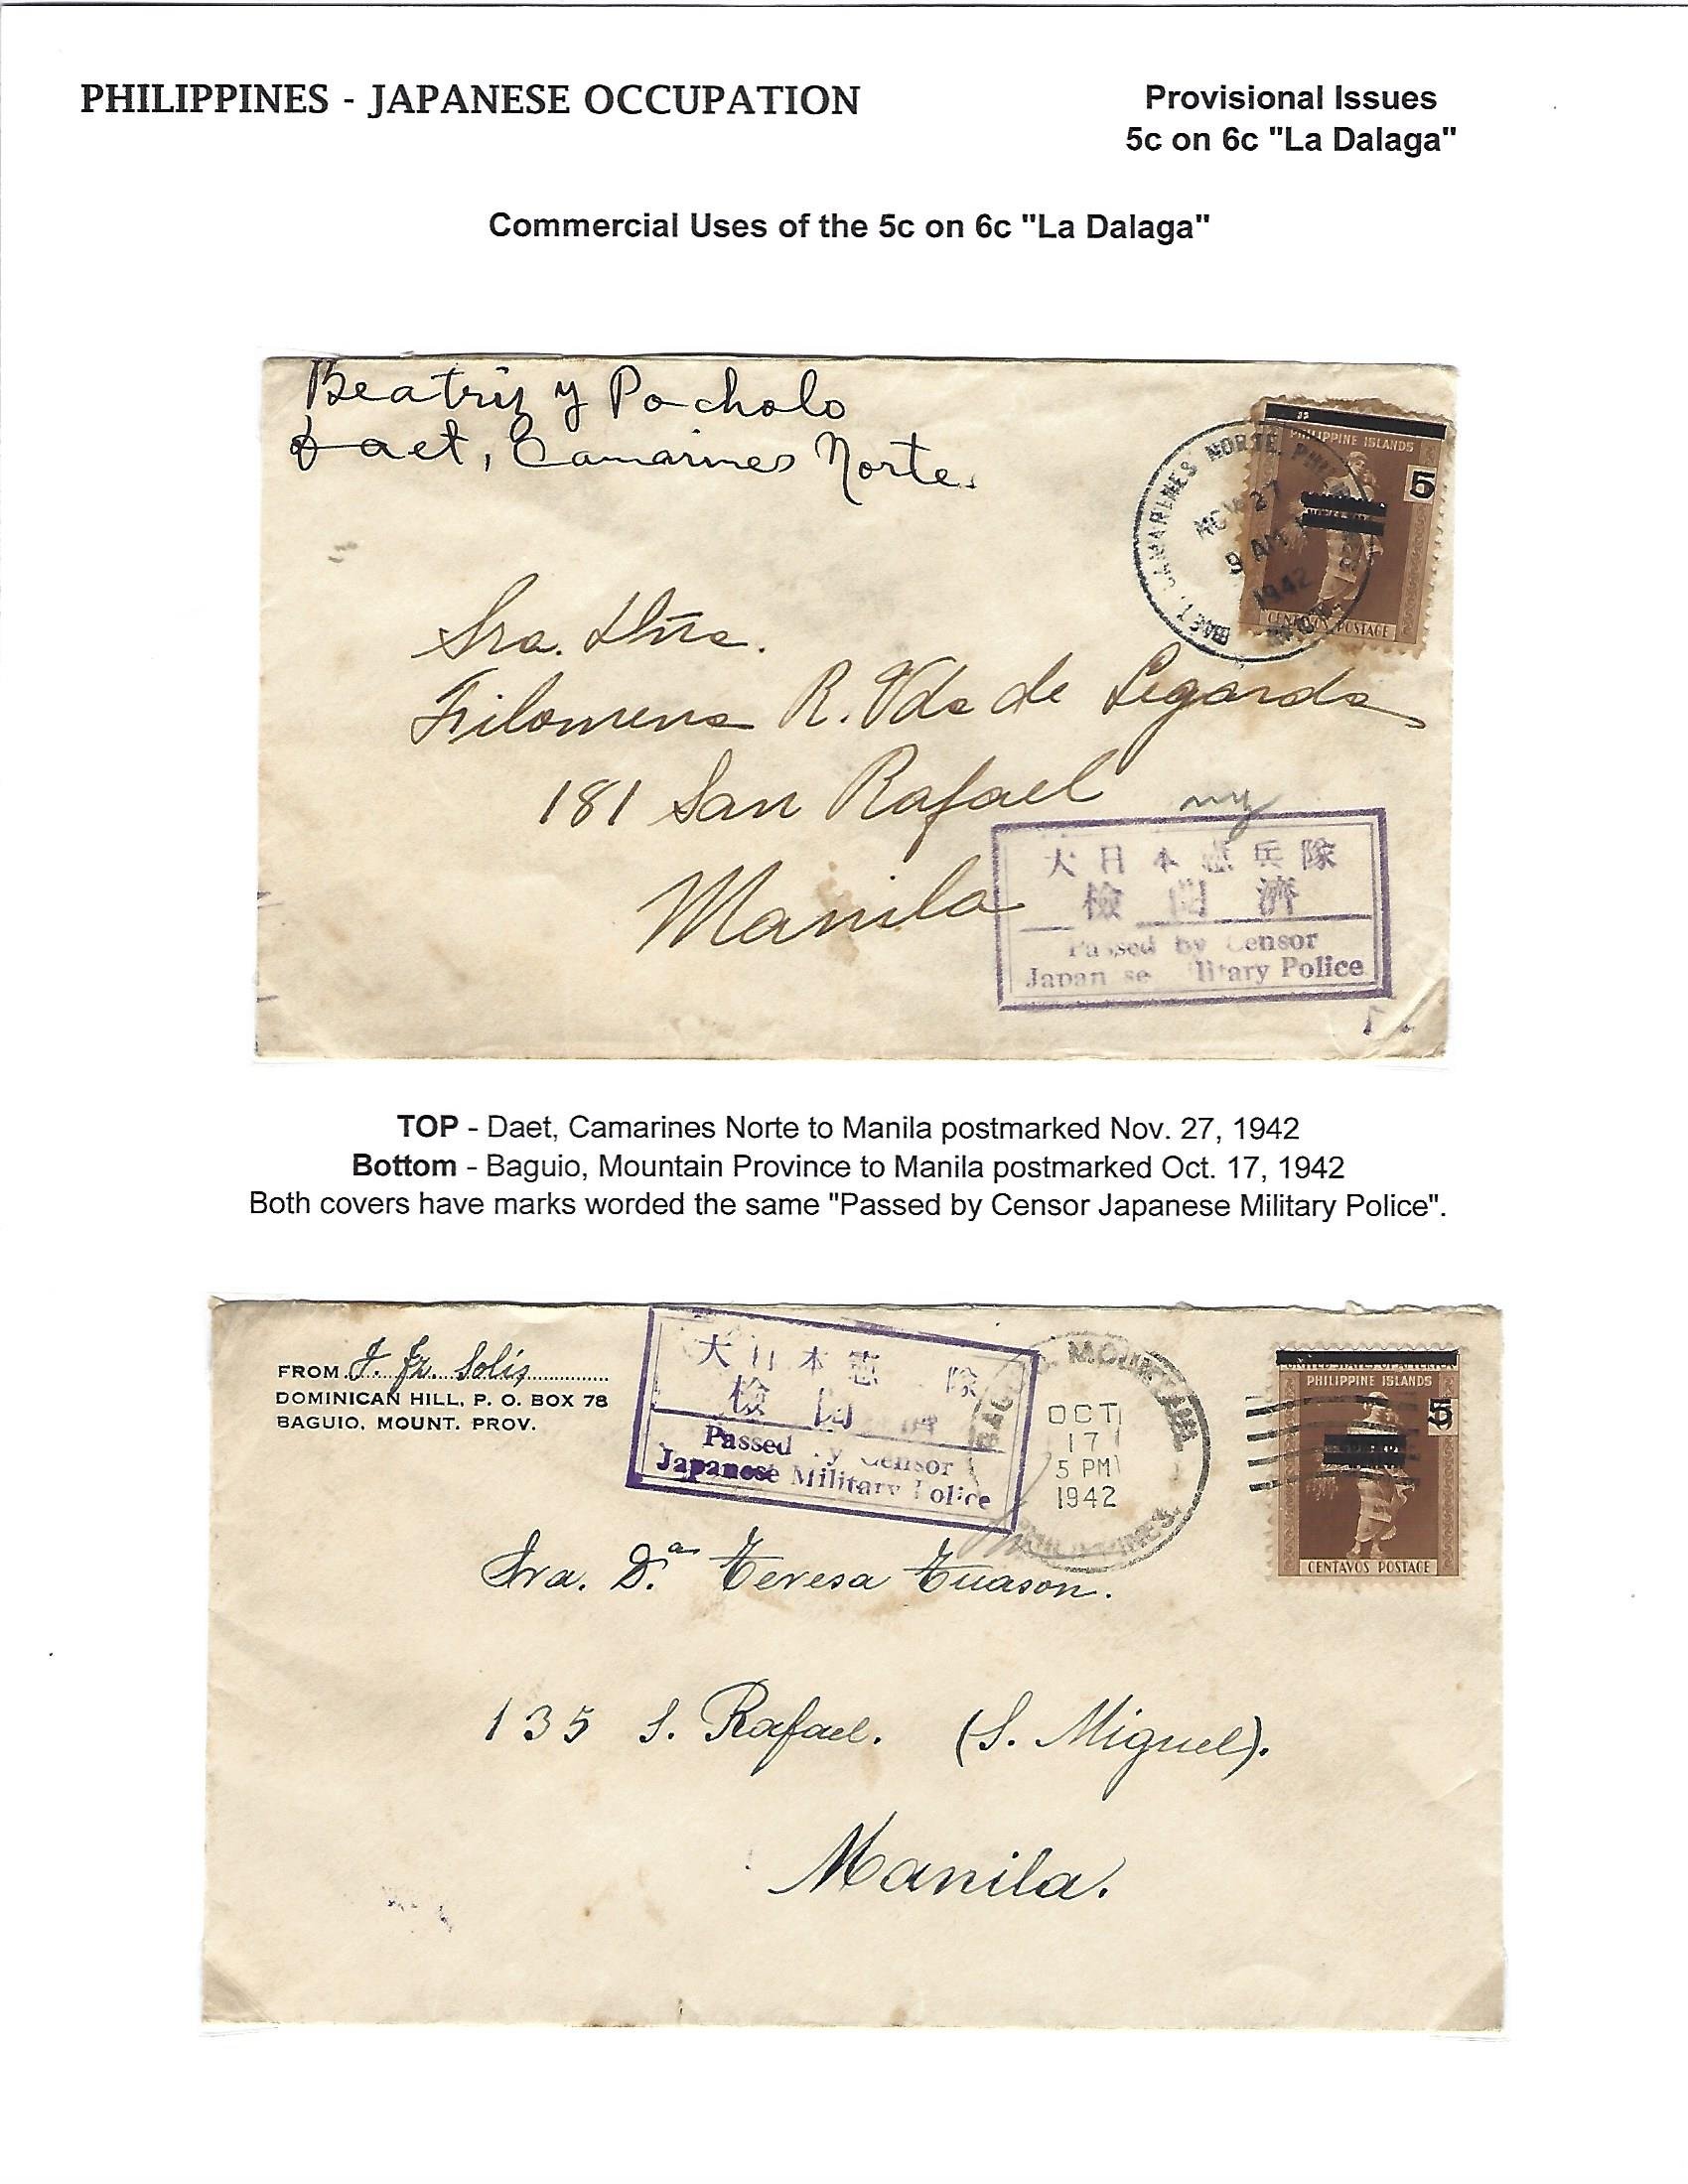 PHILIPPINES - JAPANESE OCCUPATION
Provisional Issues
5c on 6c "La Dalaga"
Commercial Uses of the 5c on 6c "La Dalaga"
Beatriz y Pocholo
Daet, Camarines Norte.
PHILIPPINE ISLANDS
5
CENTAVOS POSTAGE
DAET, CAMARINES NORTE, PHIL
NOV 27
9 AM
1942
Sra. Dña.
Filomena R. Vda de Legarda
181 San Rafael
Manila
大日本憲兵隊
檢閲濟
Passed by Censor
Japanese Military Police
TOP - Daet, Camarines Norte to Manila postmarked Nov. 27, 1942
Bottom - Baguio, Mountain Province to Manila postmarked Oct. 17, 1942
Both covers have marks worded the same "Passed by Censor Japanese Military Police".
FROM J. Jr. Solis
DOMINICAN HILL, P. O. BOX 78
BAGUIO, MOUNT. PROV.
大日本憲 隊
檢閲
Passed by Censor
Japanese Military Police
BAGUIO, MOUNTAIN
OCT
17
5 PM
1942
PHILIPPINES.
UNITED STATES OF AMERICA
PHILIPPINE ISLANDS
5
CENTAVOS POSTAGE
Sra. D.ª Teresa Tuason.
135 S. Rafael. (S. Miguel).
Manila.